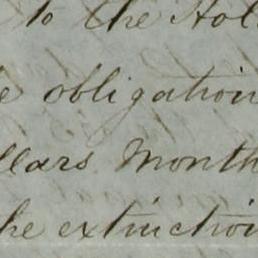 to the Hol
e obligation
llars Month
he extinction